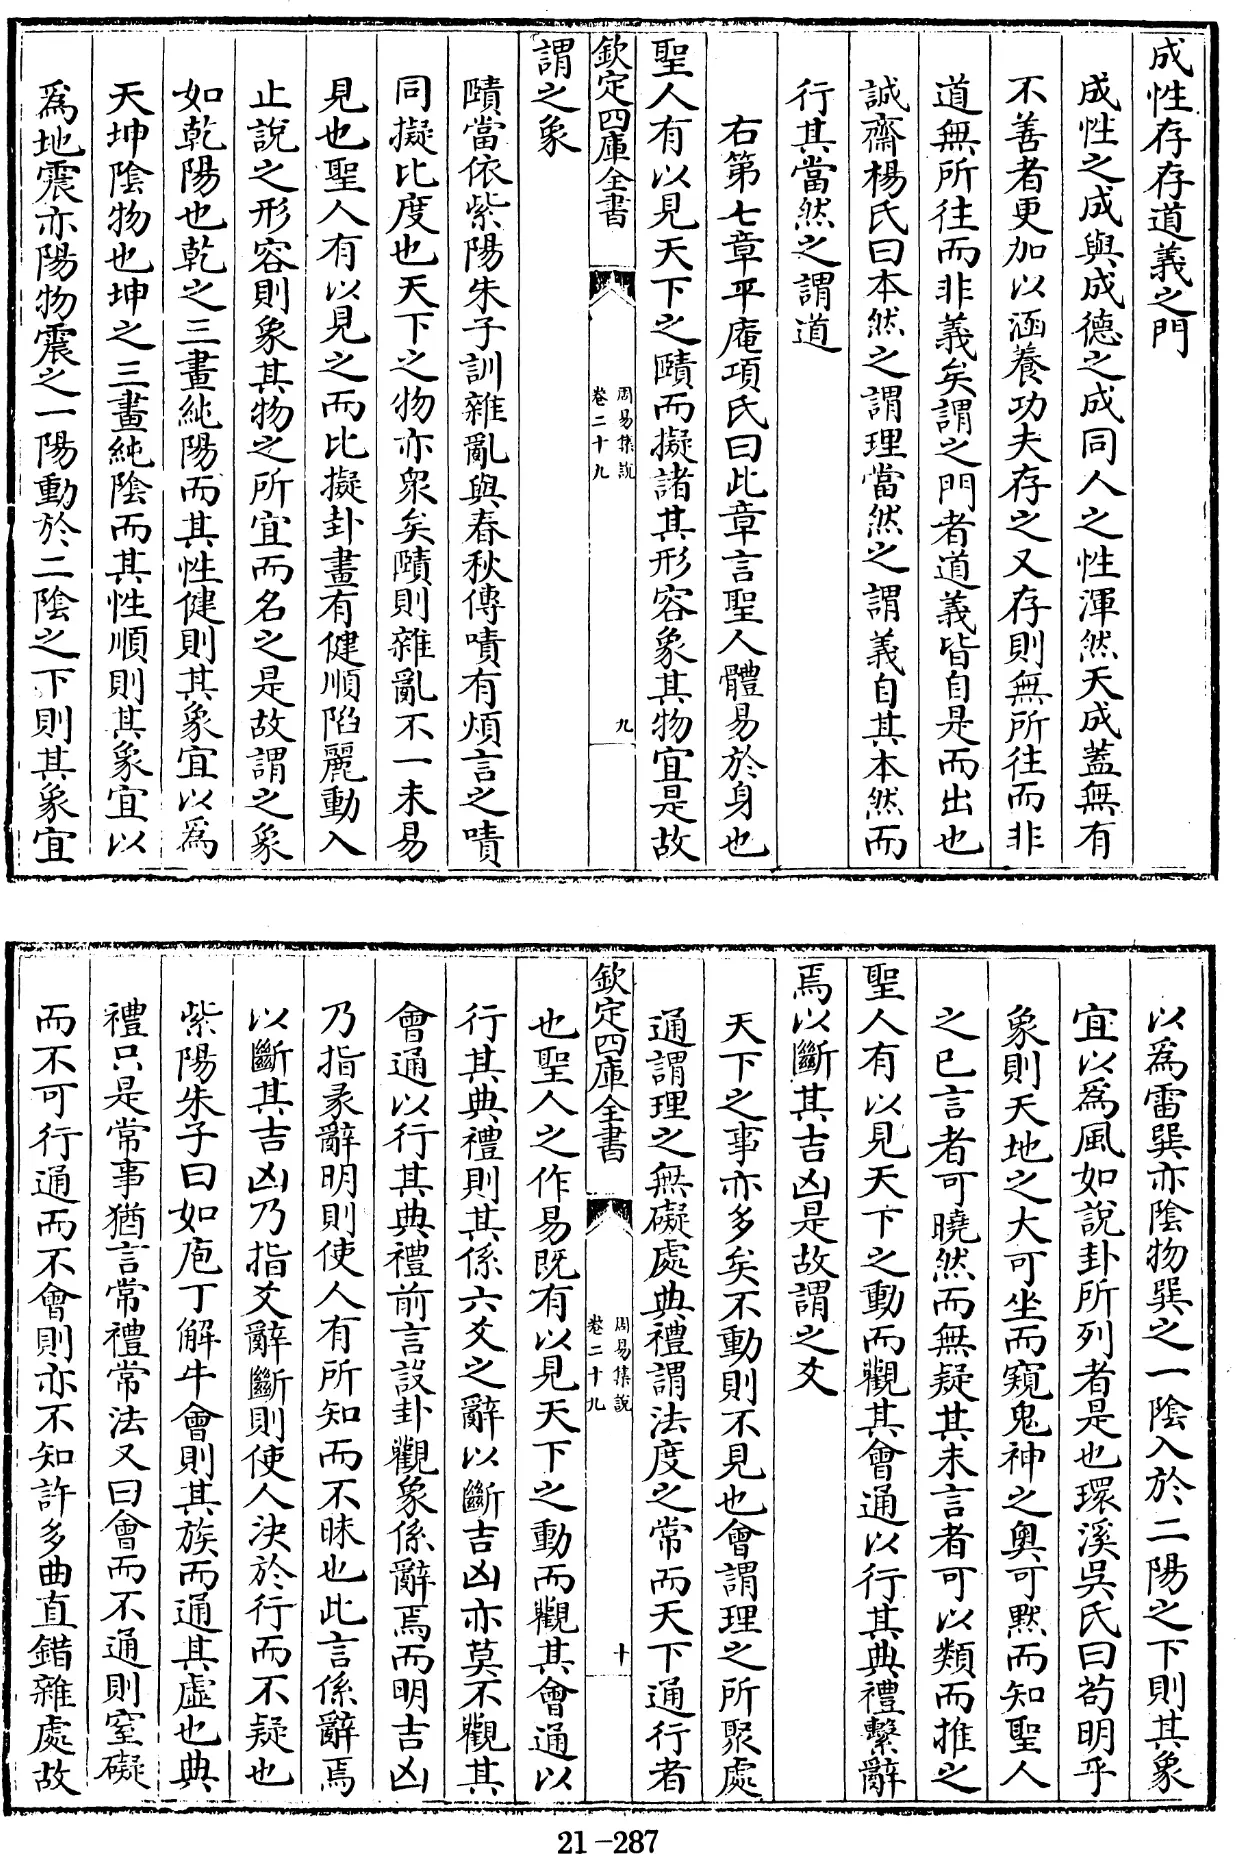 成性存存道義之門
成性之成與成德之成同人之性渾然天成蓋無有
不善者更加以涵養功夫存之又存則無所往而非
道無所往而非義矣謂之門者道義皆自是而出也
誠齋楊氏曰本然之謂理當然之謂義自其本然而
行其當然之謂道
右第七章平庵項氏曰此章言聖人體易於身也
聖人有以見天下之賾而擬諸其形容象其物宜是故
欽定四庫全書
周易集說
卷二十九
九
謂之象
賾當依紫陽朱子訓雜亂與春秋傳嘖有煩言之嘖
同擬比度也天下之物亦衆矣賾則雜亂不一未易
見也聖人有以見之而比擬卦畫有健順陷麗動入
止說之形容則象其物之所宜而名之是故謂之象
如乾陽也乾之三畫純陽而其性健則其象宜以爲
天坤陰物也坤之三畫純陰而其性順則其象宜以
爲地震亦陽物震之一陽動於二陰之下則其象宜
以爲雷巽亦陰物巽之一陰入於二陽之下則其象
宜以爲風如說卦所列者是也環溪吳氏曰茍明乎
象則天地之大可坐而窺鬼神之奧可默而知聖人
之已言者可曉然而無疑其未言者可以類而推之
聖人有以見天下之動而觀其會通以行其典禮繫辭
焉以斷其吉凶是故謂之爻
天下之事亦多矣不動則不見也會謂理之所聚處
通謂理之無礙處典禮謂法度之常而天下通行者
欽定四庫全書
周易集說
卷二十九
十
也聖人之作易既有以見天下之動而觀其會通以
行其典禮則其係六爻之辭以斷吉凶亦莫不觀其
會通以行其典禮前言設卦觀象係辭焉而明吉凶
乃指彖辭明則使人有所知而不昧也此言係辭焉
以斷其吉凶乃指爻辭斷則使人決於行而不疑也
紫陽朱子曰如庖丁解牛會則其族而通其虛也典
禮只是常事猶言常禮常法又曰會而不通則窒礙
而不可行通而不會則亦不知許多曲直錯雜處故
21-287